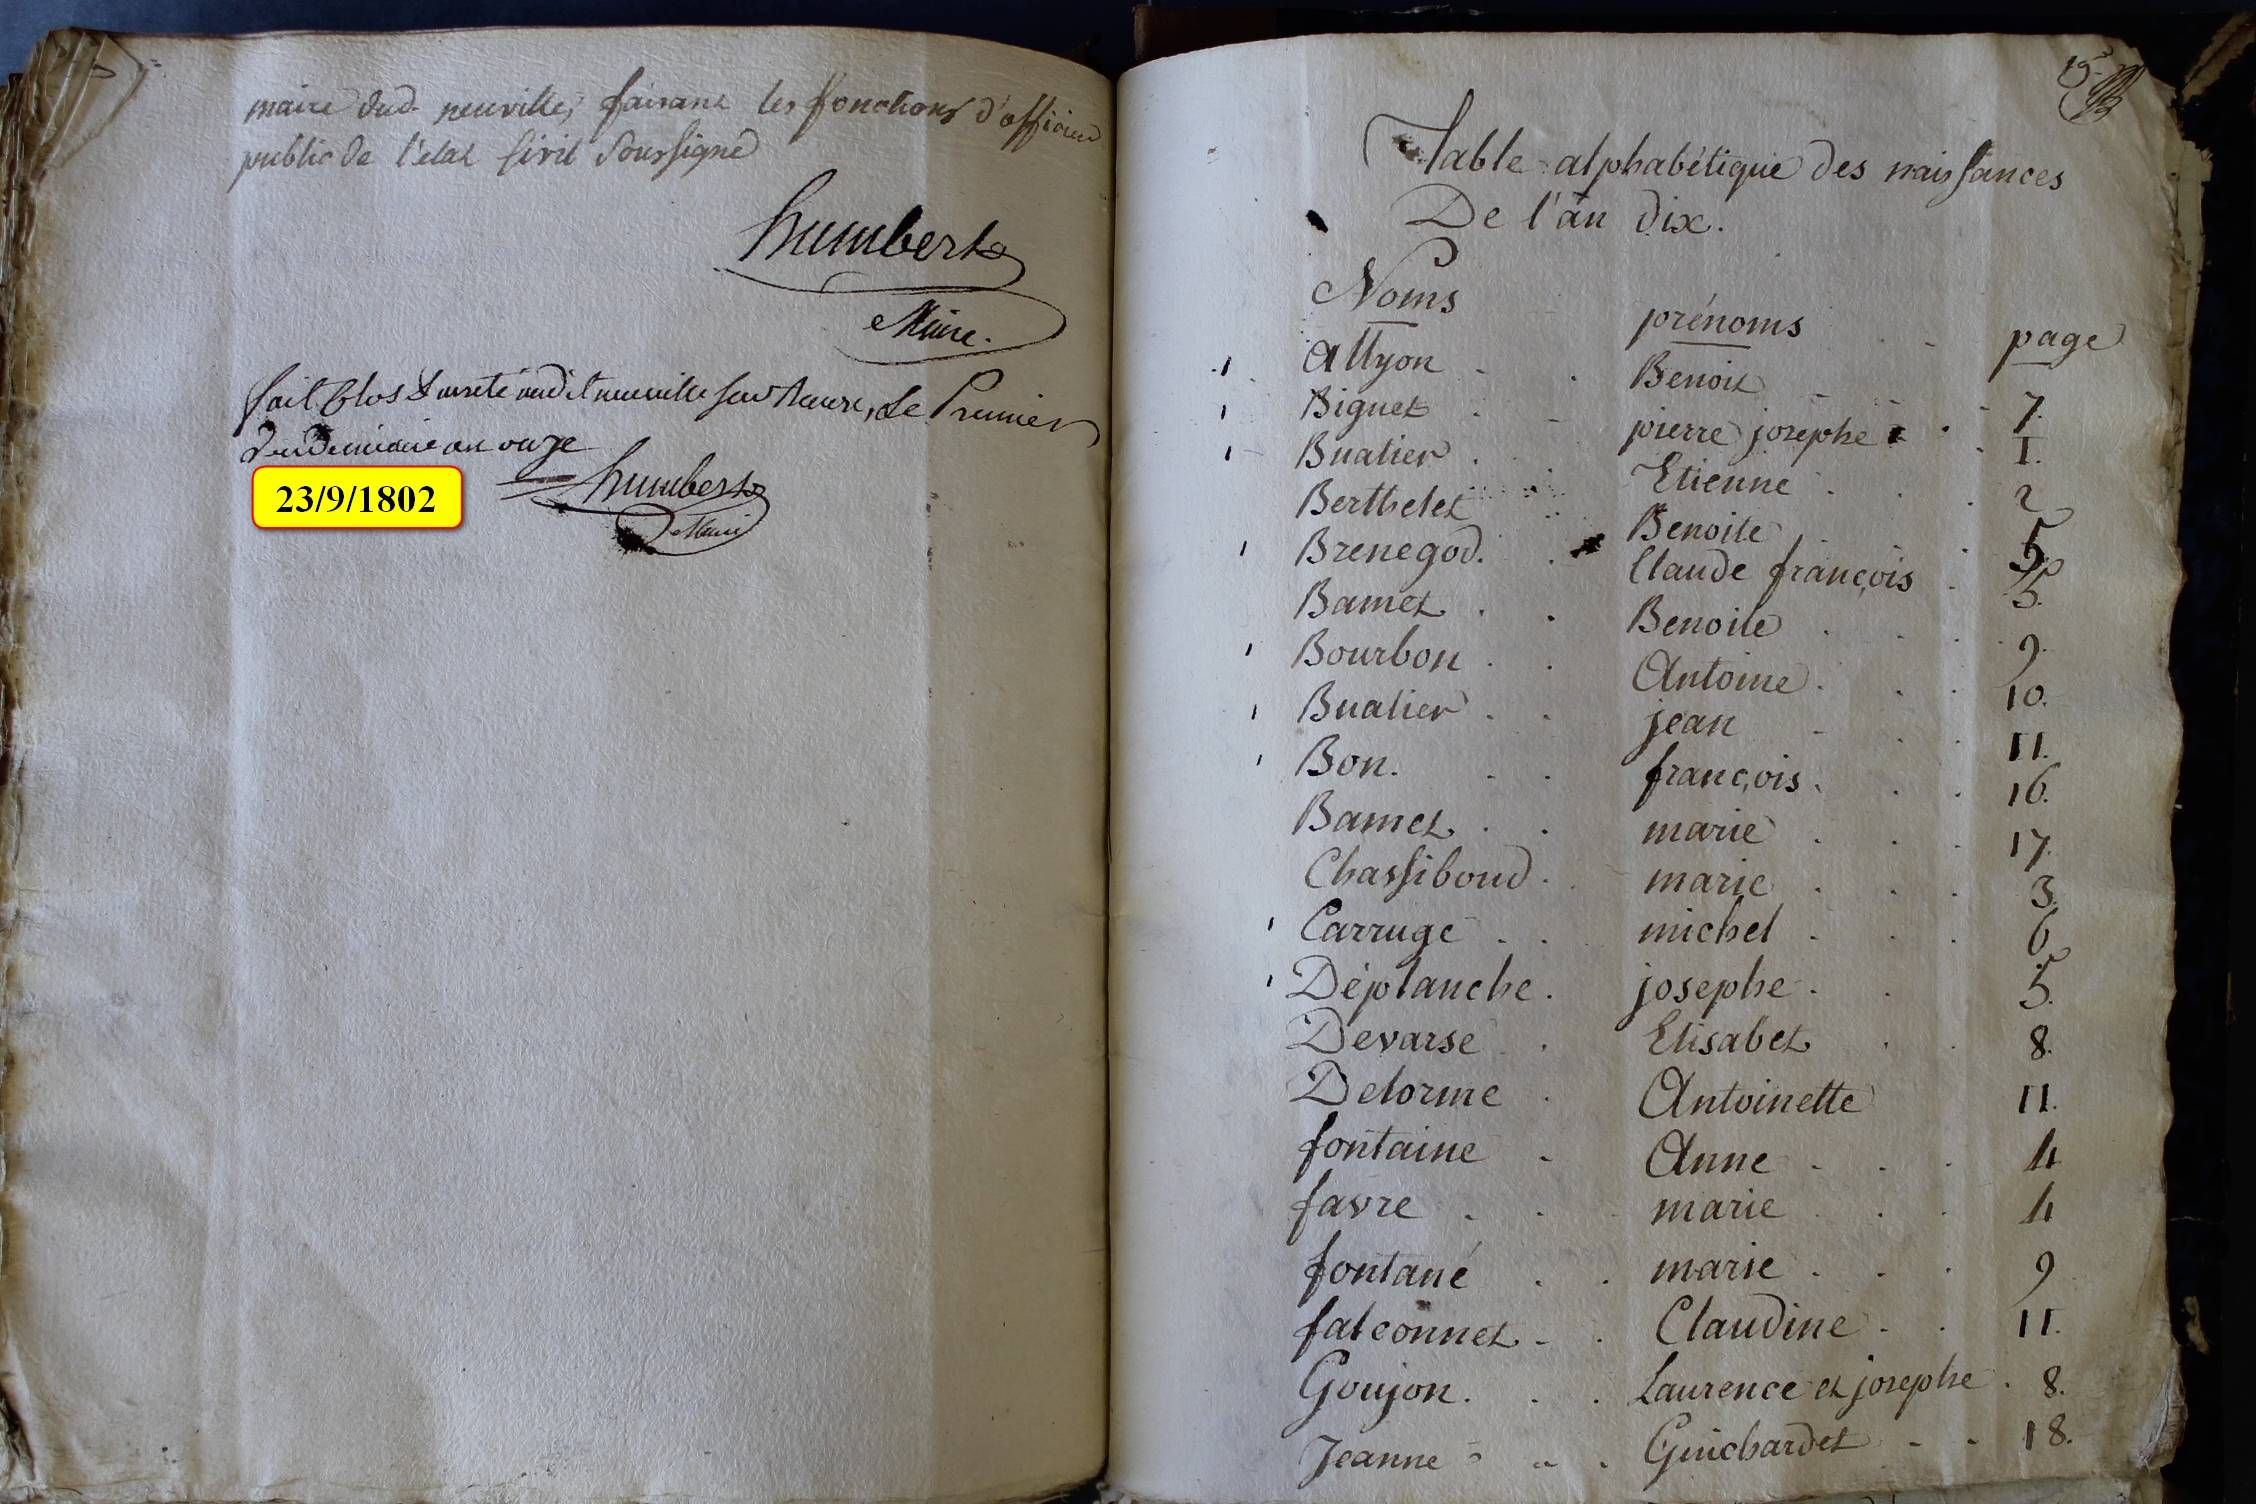 maire dud. neuville, faisant les fonctions d'officier
public de l'etat sivil soussigné
humbert
Maire.
fait Clos & arreté audit neuville sur Saone, Le Premier
Vendemiaire an onze
23/9/1802
humbert
Maire
15
Table alphabétique des naissances
De l'an dix.
Noms prénoms page
Allyon Benoit 7.
Biguet pierre josephe 1.
Bualier Etienne 2
Berthelet Benoite 5
Brenegod. Claude françois 5.
Bamet Benoite 9.
Bourbon Antoine 10.
Bualier jean 11.
Bon. françois 16.
Bamet marie 17.
Chassiboud marie 3.
Carruge michel 6
Déplanche josephe 5.
Devarse Elisabet 8.
Delorme Antoinette 11.
fontaine Anne 4
favre marie 4
fontané marie 9
falconnet Claudine 11.
Goujon. Laurence et josephe 8.
Jeanne Guichardet 18.